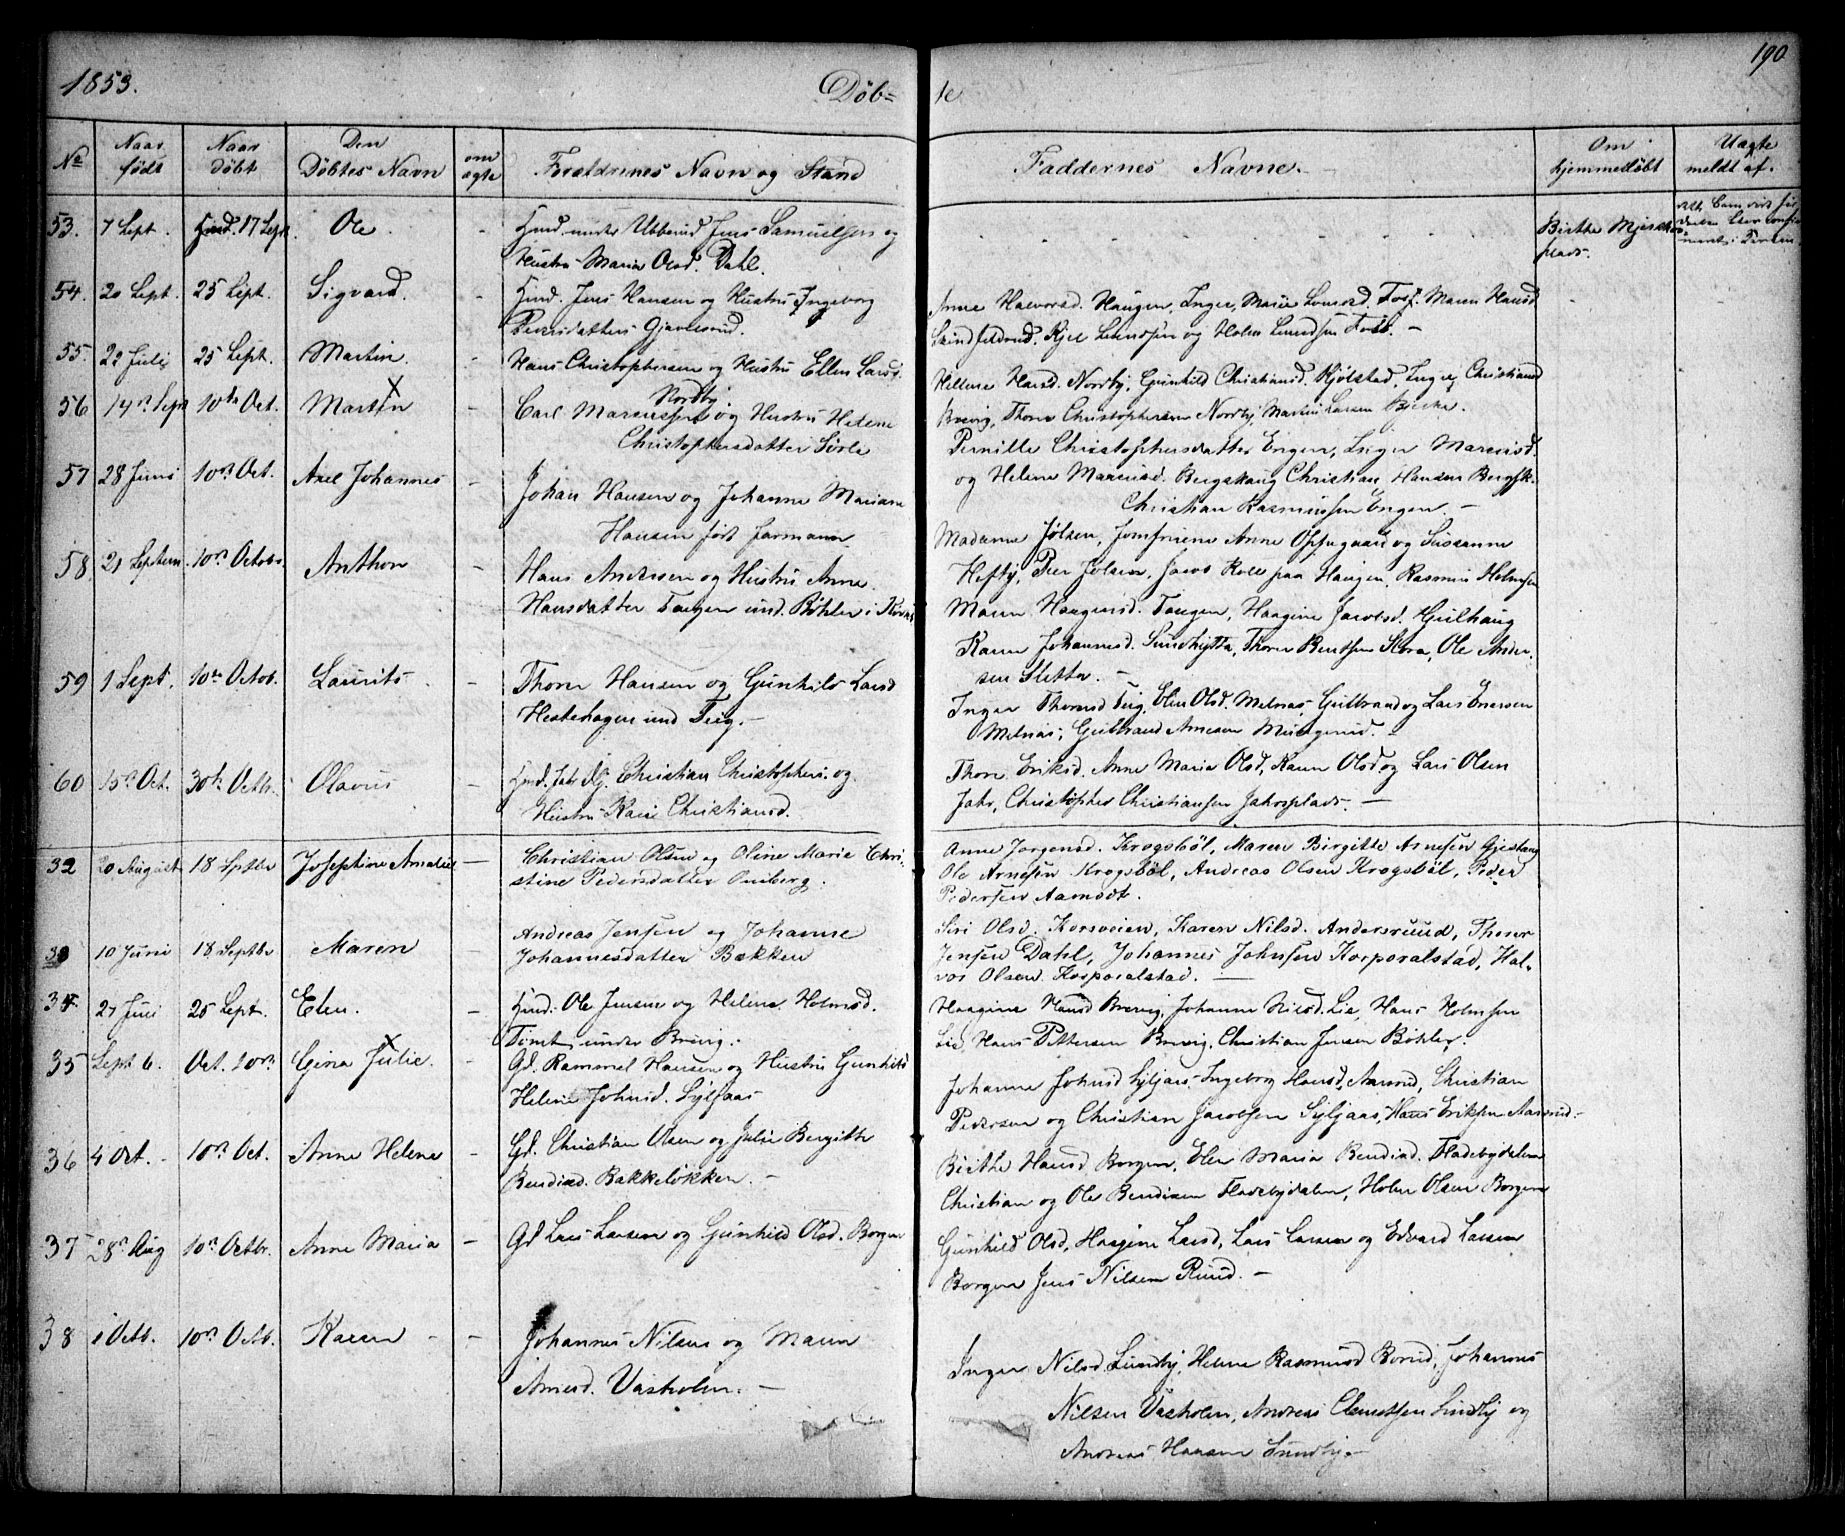 190
1853. Døb= te
No Naar født Naar Døbt Den Døbtes Navn om ægte Forældrenes Navn og Stand Faddernes Navne. Om hjemmedøbt Uægte meldt af.
53. 7 Sept. Hmd. 17 Sept. Ole Hmd. under Ubberud Jens Samuelsen og Birthe
Hustru Maria Olsd. Dahl. plads.
54. 20 Sept. 25 Sept. Sigvard. - Hmd. Jens Hansen og Hustru Ingeborg Anne Halvorsd. Haugen, Inger Marie Foss. Maren Hansd
Kjel og Holm Foss. -
55. 22 Juli 25 Sept. Martin. - Hans Christophersen og Hustru Ellen Larsd. Helene Hansd. Nordby, Gunhild Christiansd. Kjølstad, Inger Christiansd
Nordby.
56 14de Sept 10de Oct. Martin - Carl Marcussen og Hustru Helene Brevig, Thore Christophersen Nordby, Martin Larsen Bjerke.
Christophersdatter Pernille Christophersdatter Engen, Inger Marcusd.
57 28 Juni 10de Oct. Axel Johannes - Johan Hansen og Johanne Mariane og Helene Marcusd. Bergskaug Christian Hansen Bergsk.
Hansen født Jarmann Christian Rasmussen Engen. -
58 21 Septem. 10de Octobr. Anthon - Hans Andersen og Hustru Anne Madame Jølsen, Jomfruerne Anne Oppegaard og Susanne
Hefty, Peer Jølsen, Jacob Rolf paa Haugen, Rasmus Holmsen
Hansdatter Tangen und. Bøhler i Maren Haagensd. Tangen, Haagine Jacobsd. Gulhaug
Karen Johannesd. Sundbytta, Thorer Bentsen Skora, Ole Ander-
59 1 Sept. 10de Octob. Laurits - Thorer Hansen og Gunhild Larsd sen Sletta. -
Hestehagen und Teig. - Inger Thoresd Teig, Elen Olsd. Melnæs, Gulbrand og Lars Enersen
Melnæs, Gulbrand Arnesen
60 15de Oct. 30te Octbr. Olavus - Hmd. Jahr Christian Christophers. og Thore Eriksd. Anne Maria Olsd, Karen Olsd og Lars Olsen
Hustru Kari Christiansd. Jahr, Christopher Christiansen Jahrsplads. -
32 20 August 18 Septbr Josephine Amalie - Christian Olsen og Oline Marie Chri- Anne Jørgensd. Krogsbøl, Maren Birgitte Arnesen Gjestang
stine Pedersdatter Omberg. Ole Arnesen Krogsbøl, Andreas Olsen Krogsbøl, Peder
Pedersen Aamodt.
33 10 Juni 18 Septbr Maren - Andreas Jensen og Johanne Siri Olsd. Korsveien, Karen Nilsd. Andersruud, Thorer
Johannesdatter Bakken Jensen Dahl, Johannes Johnsen Korporalstad, Hal-
vor Olsen Korporalstad. -
34 27 Juni 25 Sept. Elen. - Hmd. Ole Jensen og Helene Holmsd. Haagine Hansd Brevig, Johanne Nilsd. Lie, Hans Holmsen
Tomt under Brevig. Lie, Hans Pettersen Brevig, Christian Jensen Bøhler.
35 Sept 6. Oct. 10de Gina Julie. - Gd. Rammel Hansen og Hustru Gunhild
Helene Johnsd. Syljaas Johanne Johnsd Syljaas, Ingeborg Hansd. Aamod, Christian
Pedersen og Christian Jacobsen Syljaas, Hans Eriksen Aamod.
36 4 Oct. 10de Oct. Anne Helene - Gd. Christian Olsen og Julie Bergitte Birthe Hansd Borgen, Elen Maria Bendixd. Fladebydalen
Bendixd. Bakkeløkken. - Christian og Ole Bendixen Fladebydalen, Holm Olsen Borgen
37 28de Aug 10de Octbr. Anne Maria - Gd Lars Larsen og Gunhild Olsd. Borgen Gunhild Olsd, Haagine Larsd, Lars Larsen og Edvard Larsen
Borgen Jens Nilsen Ruud. -
38 1 Octb. 10de Octb. Karen - - Johannes Nilsen og Maren Inger Nilsd Sundby, Helene Rasmusd Johannes
Arnesd. Vasholm. - Nilsen Vasholm, Andreas Clemetsen Sundby og
Andreas Hansen Sundby. -